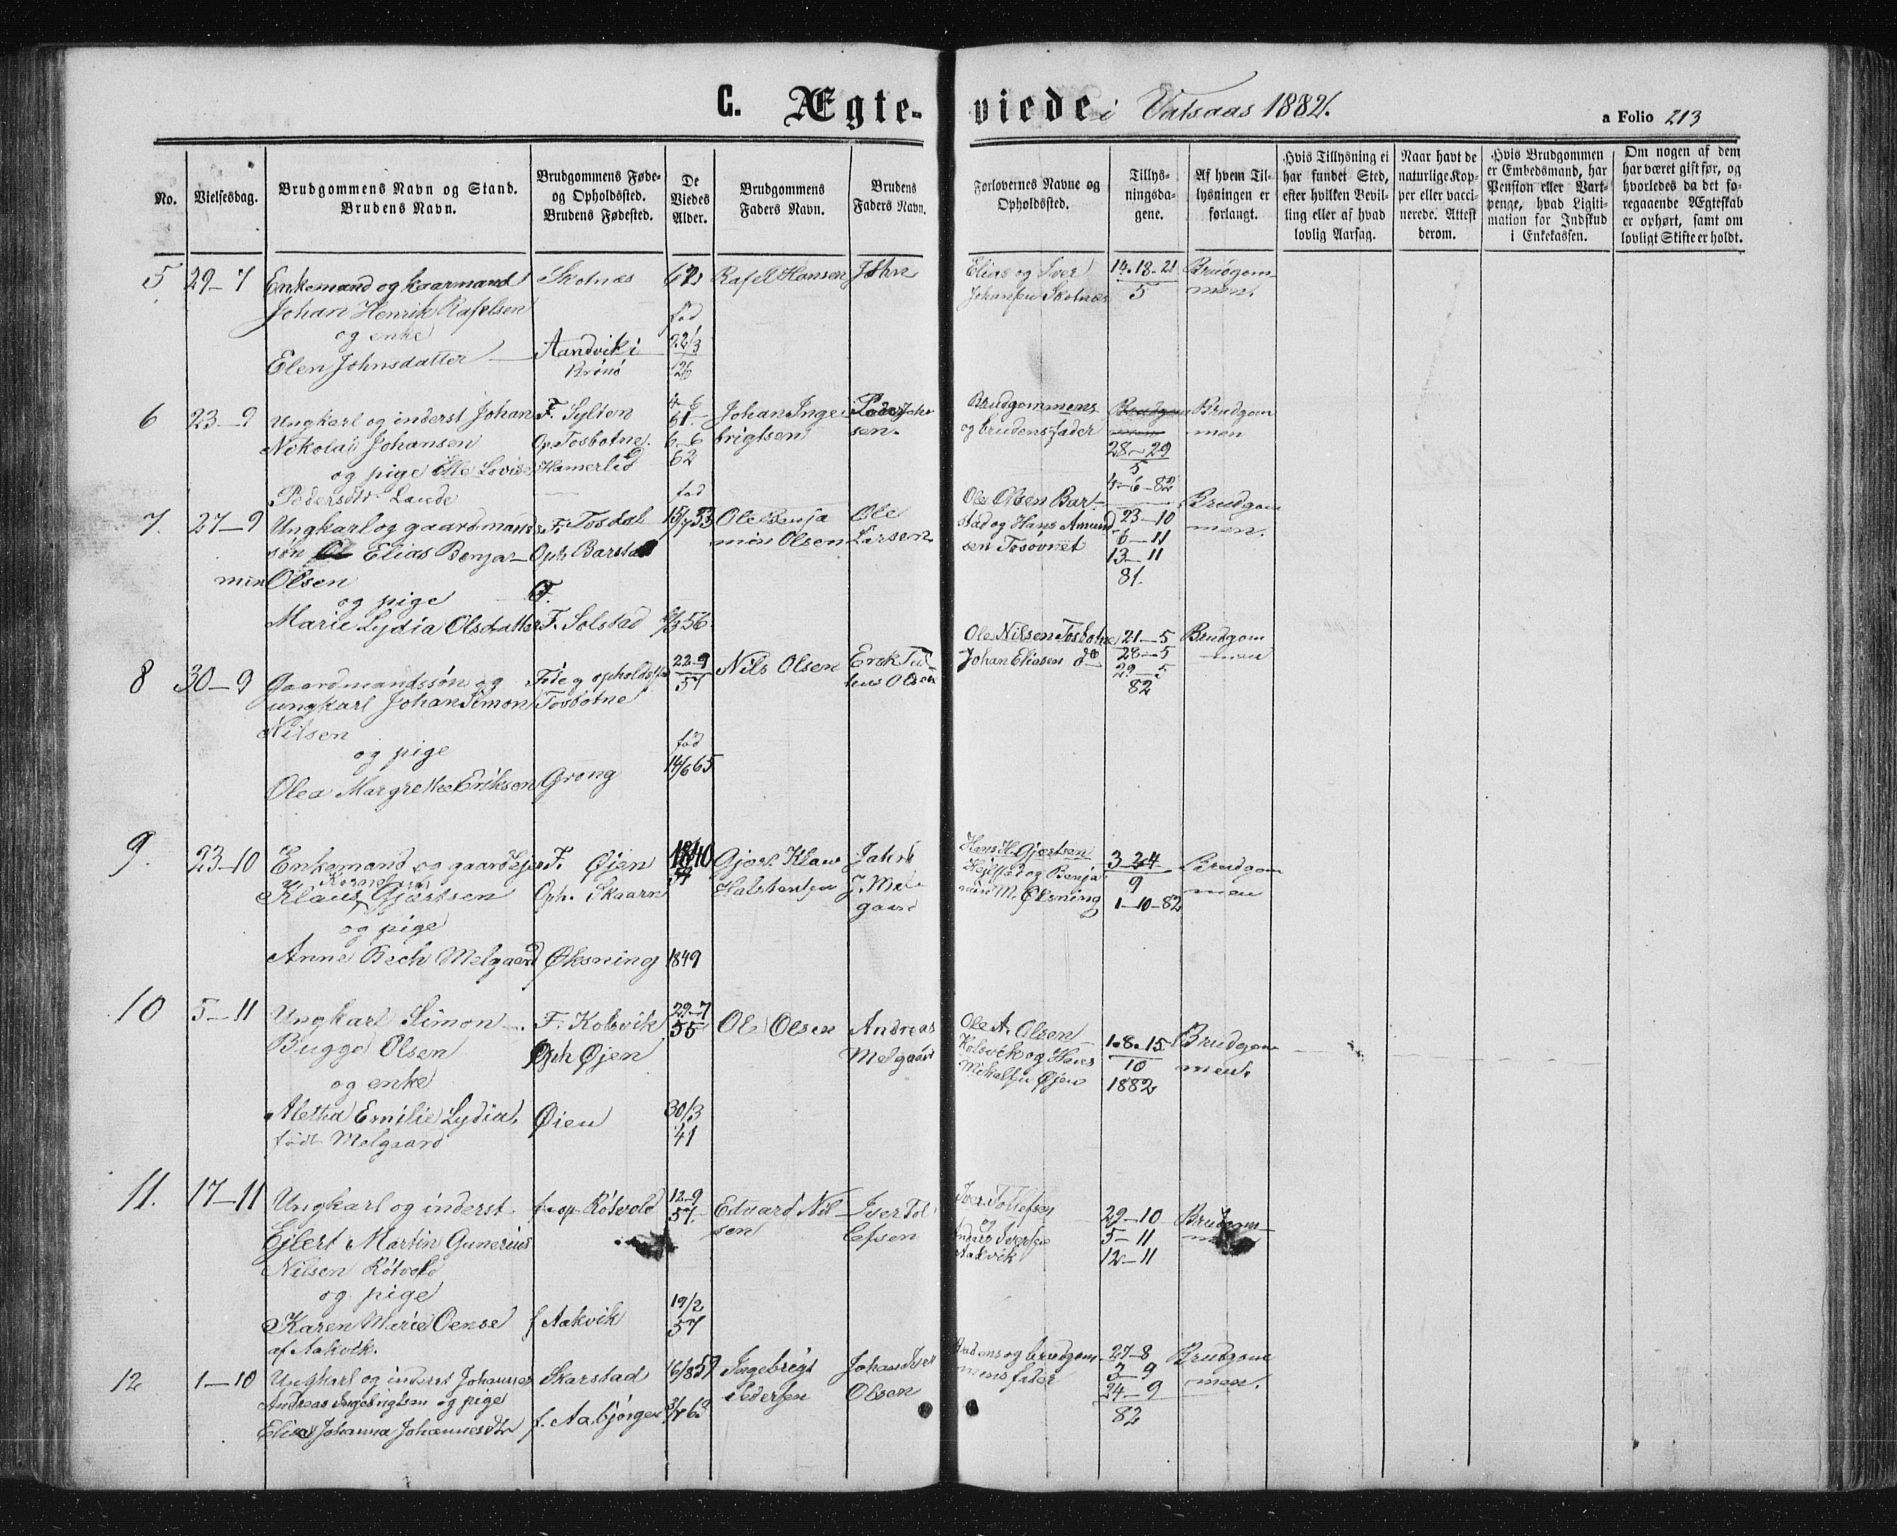 C. Ægte-viede i Vatsaas 1882.
a Folio 213
No.
Vielsesdag.
Brudgommens Navn og Stand.
Brudens Navn.
Brudgommens Føde-
og Opholdssted.
Brudens Fødested.
De
Viedes
Alder.
Brudgommens
Faders Navn.
Brudens
Faders Navn.
Forlovernes Navne og
Opholdssted.
Tillys-
ningsda-
gene.
Af hvem Til-
lysningen er
forlangt.
Hvis Tillysning ei
har fundet Sted,
efter hvilken Bevil-
ling eller af hvad
lovlig Aarsag.
Naar havt de
naturlige Kop-
per eller vacci-
nerede. Attest
derom.
Hvis Brudgommen
er Embedsmand, har
Pension eller Vart-
penge, hvad Ligiti-
mation for Indskud
i Enkekassen.
Om nogen af dem
har været gift før, og
hvorledes da det fo-
regaaende Ægteskab
er ophørt, samt om
lovligt Skifte er holdt.
5 29-7 Enkemand og kaarmand
Johan Henrik Rafelsen
og enke
Elen Johnsdatter
Skotnæs
Aandvik i
Brønø
62
fød
22/3
26
Rafel Hansen
John
Elias og Iver
Johansen Skotnæs
14.18.21
5
Brudgom-
men.
6 23-9 Ungkarl og inderst Johan
Nikolai Johansen
og pige Elle Lovise
Pedersdtr. Lande
F. Sylten
Op. Tosbotne.
Hamerlid
4-6
61.
6-6
62
Johan Inge
brigtsen
Peder Johan
sen.
Brudgommens
og brudens fader
28-29
5
4-6-82
Brudgom
men
7. 27-9 Ungkarl og gaardmands
søn Elias Benja-
min Olsen
og pige
Marie Lydia Olsdatter
F. Tosdal
Oph. Barstad
F.
F. Solstad
fød
15/7 53
6/3 56
Ole Benja
min Olsen
Ole
Larsen
Ole Olsen Bar-
stad og Hans Amund
sen Tosøvret
23-10
6-11
13-11
81.
Brudgom
men.
8 30-9 Gaardmandssøn og
ungkarl Johan Simon
Nilsen
og pige
Olea Margrethe Eriksen
Føde og opholdsst
Tosbotne
Grong
22-9
57
fød
14/6 65
Nils Olsen
Erik Tul
lius Olsen
Ole Nilsen Tosbotne
Johan Eliasen do
21-5
28-5
29-5
82
Brudgom
men
9. 23-10 Enkemand og gaardejer
Klaus Gjærtsen
og pige
Anne Bech Melgaard
F. Øjen
Oph. Skaarn
Øksning
1849
Gjert Klaus
Halstensen
Jakob
J. Mel
gaard
Hans H. Gjertsen
og Benja
min M. Øksning
3-24
9
1-10-82
Brudgom
men
10 5-11 Ungkarl Simon
Bugge Olsen
og enke
Aletha Emilie Lydia,
født Melgaard
F. Kolsvik
Oph Øjen
Øien
29-7
55
30/3
41
Ole Olsen
Andreas
Melgaard
Ole A. Olsen
Kolsvik og Hans
Mikalsen Øjen
1.8.15
10
1882
Brudgom
men.
11. 17-11 Ungkarl og inderst
Ejlert Martin Gunerius
Nilsen Røtvold
og pige
Karen Marie Oense
af Aakvik.
f. op Røtvold
f Aakvik
12-9
57.
19/2
57
Eduard Nil
sen
Iver Tol
lefsen
Iver Tollefsen
og
Aakvik
29-10
5-11
12-11
12 1-10 Ungkarl og inderst Johannes
Andreas Ingebrigtsen og pige
Elise Johanna Johannesdtr
Skarstad
f. Aabjørgen
16/8 57
Ingebrigt
Pedersen
Johan Iver
Olsen
Brudens og brudgom
mens fader
27-8
3-9
24-9
82
Brudgom
men.